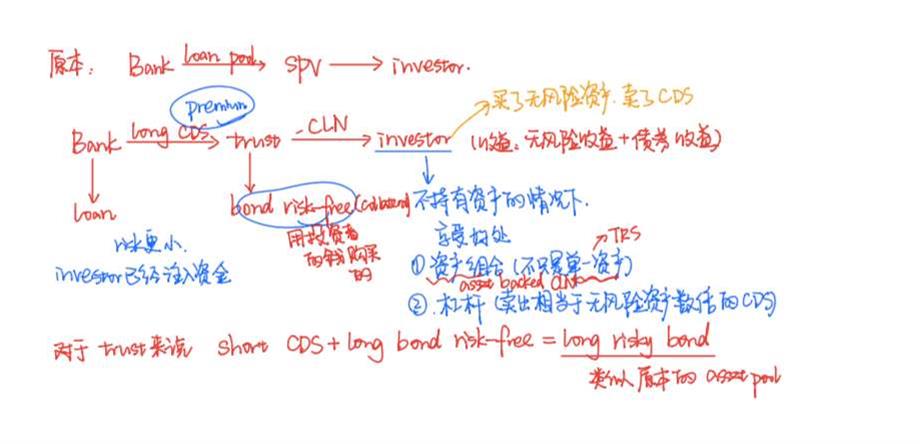 原本: Bank loan pool SPV investor.
premium 买了无风险资产. 卖了CDS
Bank Long CDS trust CLN investor (收益: 无风险收益+债券收益)
loan bond risk-free (collateral) 不持有资产的情况下.
risk更小. 用投资者 享受好处 TRS
investor已经注入资金 的钱购买 ① 资产组合 (不只是单一资产)
的 asset backed CLN
② 杠杆 (卖出相当于无风险资产数倍的CDS)
对于 trust来说 short CDS + long bond risk-free = long risky bond
类似原本的 asset pool